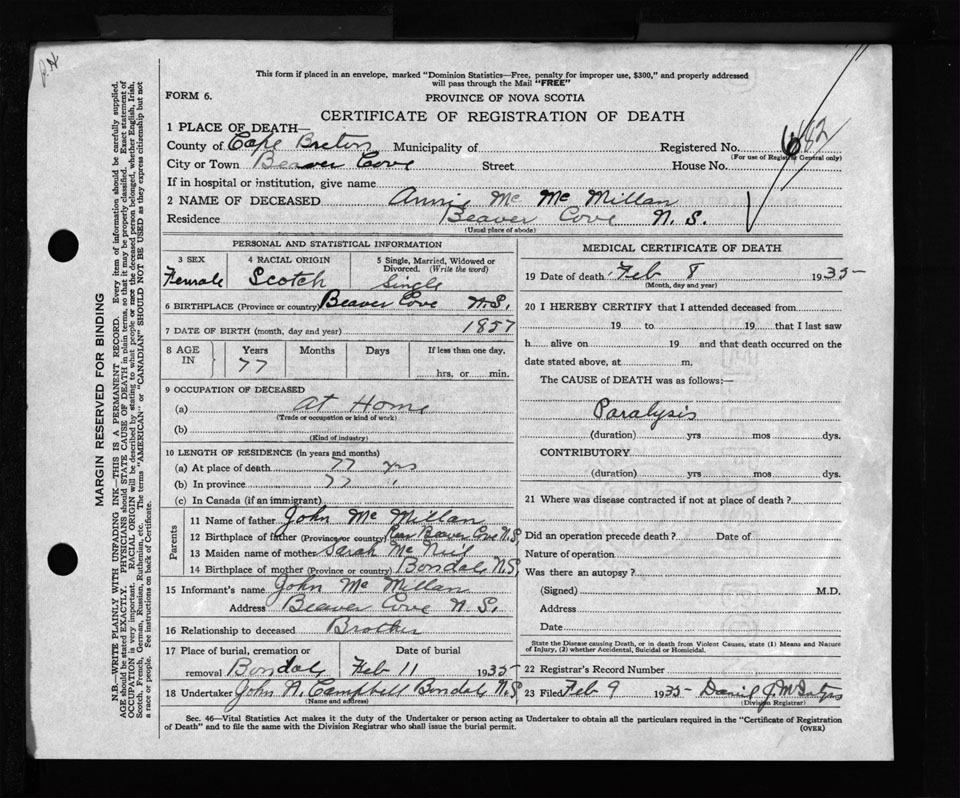 This form if placed in an envelope, marked "Dominion Statistics—Free, penalty for improper use, $300," and properly addressed
will pass through the Mail "FREE"
FORM 6.
PROVINCE OF NOVA SCOTIA
CERTIFICATE OF REGISTRATION OF DEATH
1 PLACE OF DEATH—
County of Cape Breton Municipality of Registered No. 682
(For use of Registrar General only)
City or Town Beaver Cove Street House No.
If in hospital or institution, give name
2 NAME OF DECEASED Annie Mc Mc Millan
Residence Beaver Cove N. S.
(Usual place of abode)
PERSONAL AND STATISTICAL INFORMATION
3 SEX 4 RACIAL ORIGIN 5 Single, Married, Widowed or
Divorced. (Write the word)
Female Scotch Single
6 BIRTHPLACE (Province or country) Beaver Cove N.S.
7 DATE OF BIRTH (month, day and year) 1857
8 AGE IN Years Months Days If less than one day.
77 hrs. or min.
9 OCCUPATION OF DECEASED
(a) At Home
(Trade or occupation or kind of work)
(b)
(Kind of industry)
10 LENGTH OF RESIDENCE (in years and months)
(a) At place of death 77 yrs
(b) In province 77 "
(c) In Canada (if an immigrant)
Parents
11 Name of father John Mc Millan
12 Birthplace of father (Province or country) Beaver Cove N.S.
13 Maiden name of mother Sarah Mc Neil
14 Birthplace of mother (Province or country) Bondale N.S.
15 Informant's name John Mc Millan
Address Beaver Cove N.S.
16 Relationship to deceased Brother
17 Place of burial, cremation or Date of burial
removal Bondale Feb 11 1935
18 Undertaker John A. Campbell Bondale N.S
(Name and address)
MEDICAL CERTIFICATE OF DEATH
19 Date of death Feb 8 1935
(Month, day and year)
20 I HEREBY CERTIFY that I attended deceased from
19 to 19 that I last saw
h alive on 19 and that death occurred on the
date stated above, at m.
The CAUSE of DEATH was as follows:—
Paralysis
(duration) yrs mos dys.
CONTRIBUTORY
(duration) yrs mos dys.
21 Where was disease contracted if not at place of death?
Did an operation precede death? Date of
Nature of operation
Was there an autopsy?
(Signed) M.D.
Address
Date
State the Disease causing Death, or in death from Violent Causes, state (1) Means and Nature
of Injury, (2) whether Accidental, Suicidal or Homicidal.
22 Registrar's Record Number
23 Filed Feb 9 1935 Daniel J.
(Division Registrar)
Sec. 46—Vital Statistics Act makes it the duty of the Undertaker or person acting as Undertaker to obtain all the particulars required in the "Certificate of Registration
of Death" and to file the same with the Division Registrar who shall issue the burial permit.
(OVER)
MARGIN RESERVED FOR BINDING
N.B.—WRITE PLAINLY WITH UNFADING INK—THIS IS A PERMANENT RECORD. Every item of information should be carefully supplied.
AGE should be stated EXACTLY. PHYSICIANS should STATE CAUSE OF DEATH in plain terms, so that it may be properly classified. Exact statement of
OCCUPATION is very important. RACIAL ORIGIN will be described by stating to what people or race the deceased person belonged, whether English, Irish,
Scotch, French, German, Russian, Ruthenian, etc. The terms "AMERICAN" or "CANADIAN" SHOULD NOT BE USED as they express citizenship but not
a race or people. See instructions on back of Certificate.